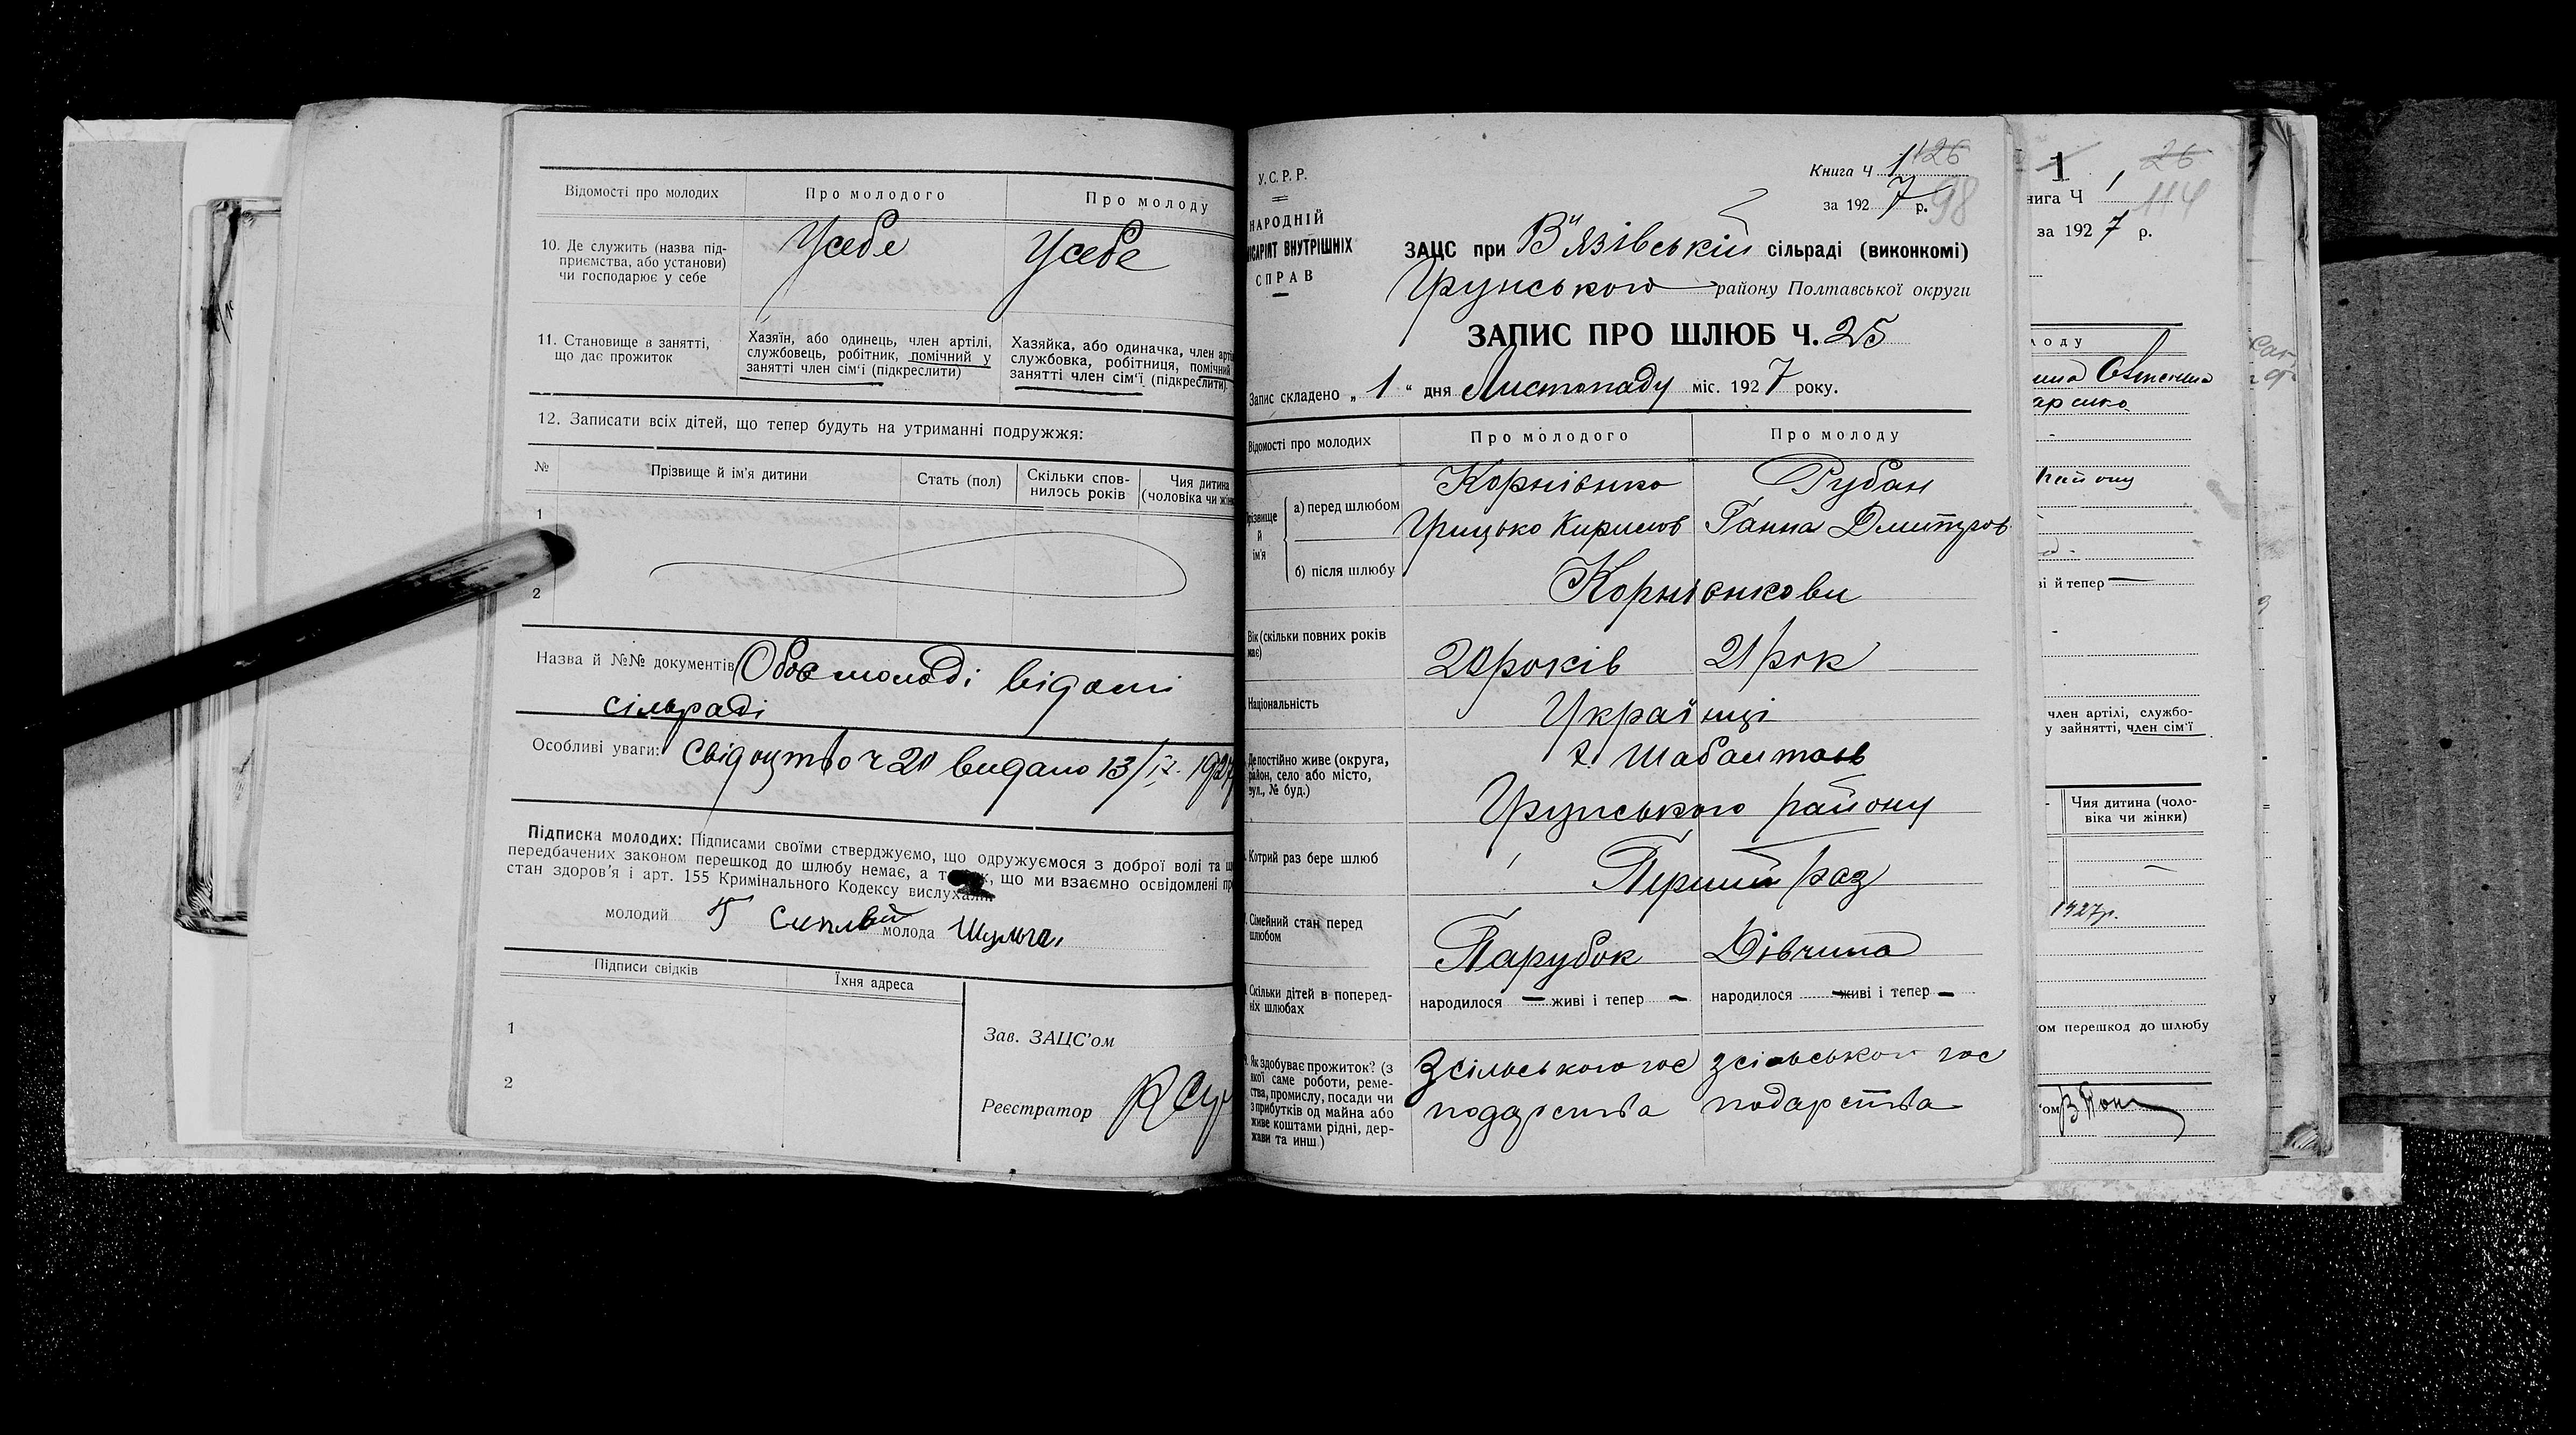 Відомості про молодих
Про молодого
Про молоду
10. Де служить (назва під-
приємства, або установи)
чи господарює у себе
Усебе
Усебе
11. Становище в занятті,
що дає прожиток
Хазяїн, або одинець, член артілі,
службовець, робітник, помічний у
занятті член сім'ї (підкреслити)
Хазяйка, або одиначка, член арті
службовка, робітниця, помічний
занятті член сім'ї (підкреслити)
12. Записати всіх дітей, що тепер будуть на утриманні подружжя:
№
Прізвище й ім'я дитини
Стать (пол)
Скільки спов-
нилось років
Чия дитина
(чоловіка чи жін
1
2
Назва й №№ документів Обоє молоді відомі
сільраді
Особливі уваги: Свідоцтво ч 20 видано 13/IX. 1927
Підписка молодих: Підписами своїми стверджуємо, що одружуємося з доброї волі та щ
передбачених законом перешкод до шлюбу немає, а що ми взаємно освідомлені пр
стан здоров'я і арт. 155 Кримінального Кодексу вислухали
молодий
молода Шульга
Підписи свідків
Їхня адреса
1
2
Зав. ЗАЦС'ом
Реєстратор
У.С.Р.Р.
НАРОДНІЙ
ІСАРІЯТ ВНУТРІШНІХ
СПРАВ
Книга Ч 1 126
за 192 7 р. 98
ЗАЦС при В"язівській сільраді (виконкомі)
Грунського району Полтавської округи
ЗАПИС ПРО ШЛЮБ Ч. 25
Запис складено „ 1 “ дня Листопаду міс. 192 7 року.
Відомості про молодих
Про молодого
Про молоду
різвище
й
ім'я
а) перед шлюбом
б) після шлюбу
Корнієнко
Грицько Кирилов
Рубан
Ганна Дмитров
Корнієнкови
Вік (скільки повних років
має)
20 років
21 рік
Національність
Українці
Де постійно живе (округа,
район, село або місто,
вул., № буд.)
х. Шабалтаїв
Грунського району
Котрий раз бере шлюб
Перший раз
Сімейний стан перед
шлюбом
Парубок
Дівчина
Скільки дітей в поперед-
ніх шлюбах
народилося — живі і тепер —
народилося — живі і тепер —
Як здобуває прожиток? (з
якої саме роботи, реме-
ства, промислу, посади чи
з прибутків од майна або
живе коштами рідні, дер-
жави та инш.)
Зсільського гос
подарства
зсільського гос
подарства
1
26
нига Ч 1
114
за 192 7 р.
лоду
району
і й тепер —
член артілі, службо-
у зайнятті, член сім'ї
Чия дитина (чоло-
віка чи жінки)
1927р.
ом перешкод до шлюбу
'ом